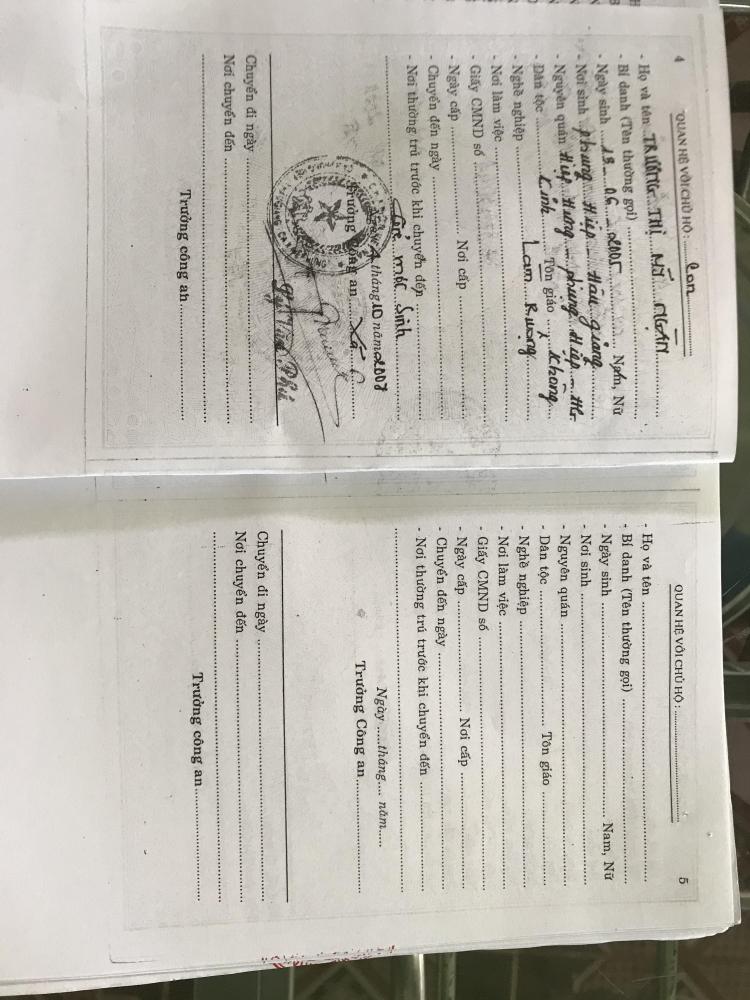 4
QUAN HỆ VỚI CHỦ HỘ: Con
- Họ và tên TRƯƠNG THỊ MỸ NGÂN
- Bí danh (Tên thường gọi) ........
- Ngày sinh 13 - 06 - 2005 Nam, Nữ
- Nơi sinh phụng Hiệp - Hậu giang
- Nguyên quán Hiệp Hưng - phụng Hiệp - HG
- Dân tộc Kinh Tôn giáo Không
- Nghề nghiệp Làm Ruộng
- Nơi làm việc ........
- Giấy CMND số ........
- Ngày cấp ........ Nơi cấp ........
- Chuyển đến ngày ........
- Nơi thường trú trước khi chuyển đến
mới Sinh
tháng 10 năm 2007
Trưởng Công an Xã
Chuyển đi ngày ........
Nơi chuyển đến ........
Trưởng công an ........
5
QUAN HỆ VỚI CHỦ HỘ: ........
- Họ và tên ........
- Bí danh (Tên thường gọi) ........
- Ngày sinh ........ Nam, Nữ
- Nơi sinh ........
- Nguyên quán ........
- Dân tộc ........ Tôn giáo ........
- Nghề nghiệp ........
- Nơi làm việc ........
- Giấy CMND số ........
- Ngày cấp ........ Nơi cấp ........
- Chuyển đến ngày ........
- Nơi thường trú trước khi chuyển đến ........
Ngày ..... tháng .... năm .....
Trưởng Công an ........
Chuyển đi ngày ........
Nơi chuyển đến ........
Trưởng công an ........